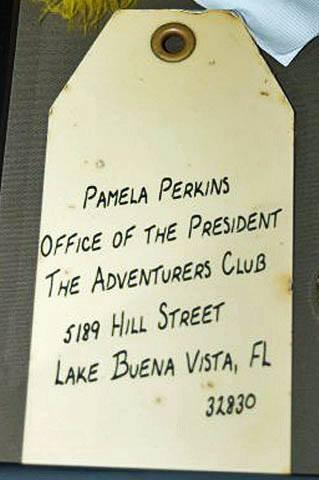 PAMELA PERKINS
OFFICE OF THE PRESIDENT
THE ADVENTURERS CLUB
5189 HILL STREET
LAKE BUENA VISTA, FL
32830